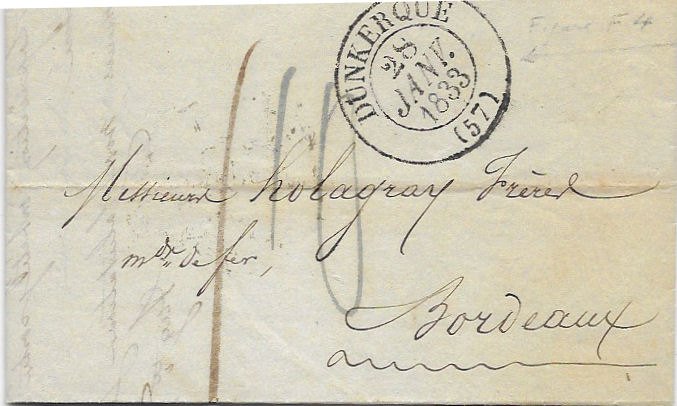 DUNKERQUE
28
JANV.
1833
(57)
Messieurs holagray Frères
mds de fer,
Bordeaux